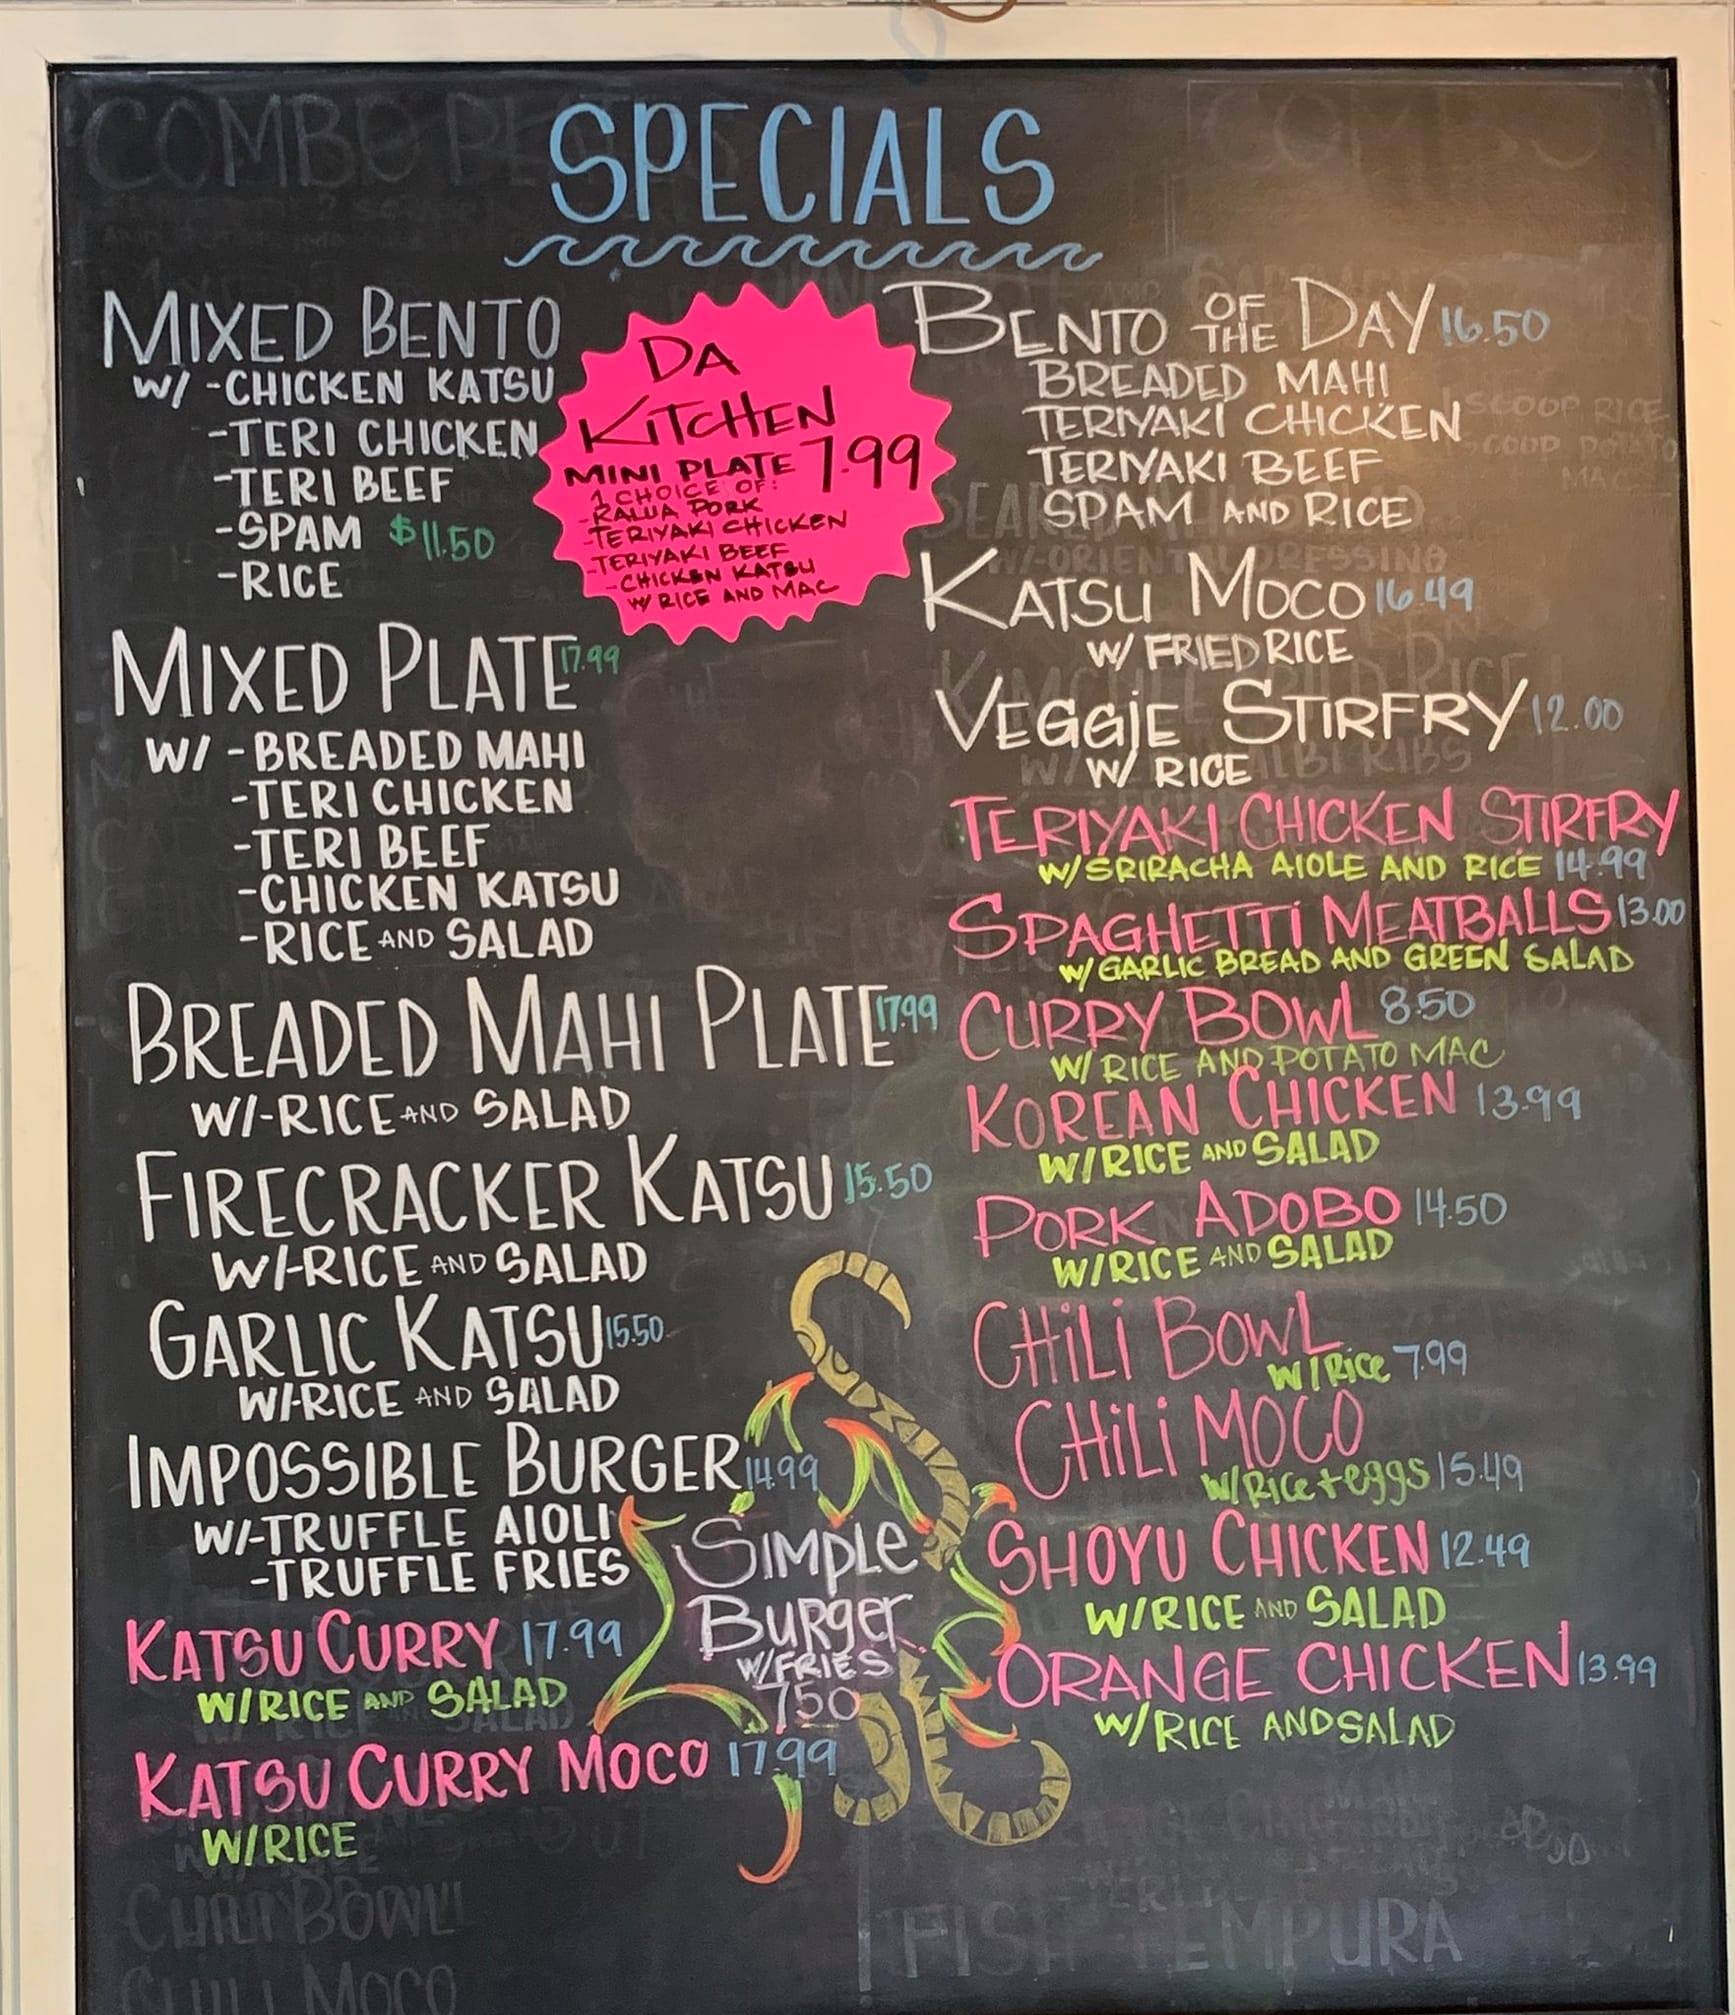 SPECIALS
MIXED BENTO
W/ -CHICKEN KATSU
-TERI CHICKEN
-TERI BEEF
-SPAM $11.50
-RICE
MIXED PLATE 17.99
W/ -BREADED MAHI
-TERI CHICKEN
-TERI BEEF
-CHICKEN KATSU
-RICE AND SALAD
BREADED MAHI PLATE 17.99
W/-RICE AND SALAD
FIRECRACKER KATSU 15.50
W/-RICE AND SALAD
GARLIC KATSU 15.50
W/-RICE AND SALAD
IMPOSSIBLE BURGER 14.99
W/-TRUFFLE AIOLI
-TRUFFLE FRIES
KATSU CURRY 17.99
W/RICE AND SALAD
KATSU CURRY MOCO 17.99
W/RICE
DA
KITCHEN
MINI PLATE 7.99
1 CHOICE OF:
-KALUA PORK
-TERIYAKI CHICKEN
-TERIYAKI BEEF
-CHICKEN KATSU
W/ RICE AND MAC
SIMPLE
BURGER
W/FRIES
750
BENTO OF THE DAY 16.50
BREADED MAHI
TERIYAKI CHICKEN
TERIYAKI BEEF
SPAM AND RICE
KATSU MOCO 16.49
W/ FRIED RICE
VEGGIE STIRFRY 12.00
W/ RICE
TERIYAKI CHICKEN STIRFRY
W/SRIRACHA AIOLE AND RICE 14.99
SPAGHETTI MEATBALLS 13.00
W/ GARLIC BREAD AND GREEN SALAD
CURRY BOWL 8.50
W/ RICE AND POTATO MAC
KOREAN CHICKEN 13.99
W/RICE AND SALAD
PORK ADOBO 14.50
W/RICE AND SALAD
CHILI BOWL
W/Rice 7.99
CHILI MOCO
W/Rice + eggs 15.49
SHOYU CHICKEN 12.49
W/RICE AND SALAD
ORANGE CHICKEN 13.99
W/RICE AND SALAD
CHILI MOCO
FISH TEMPURA